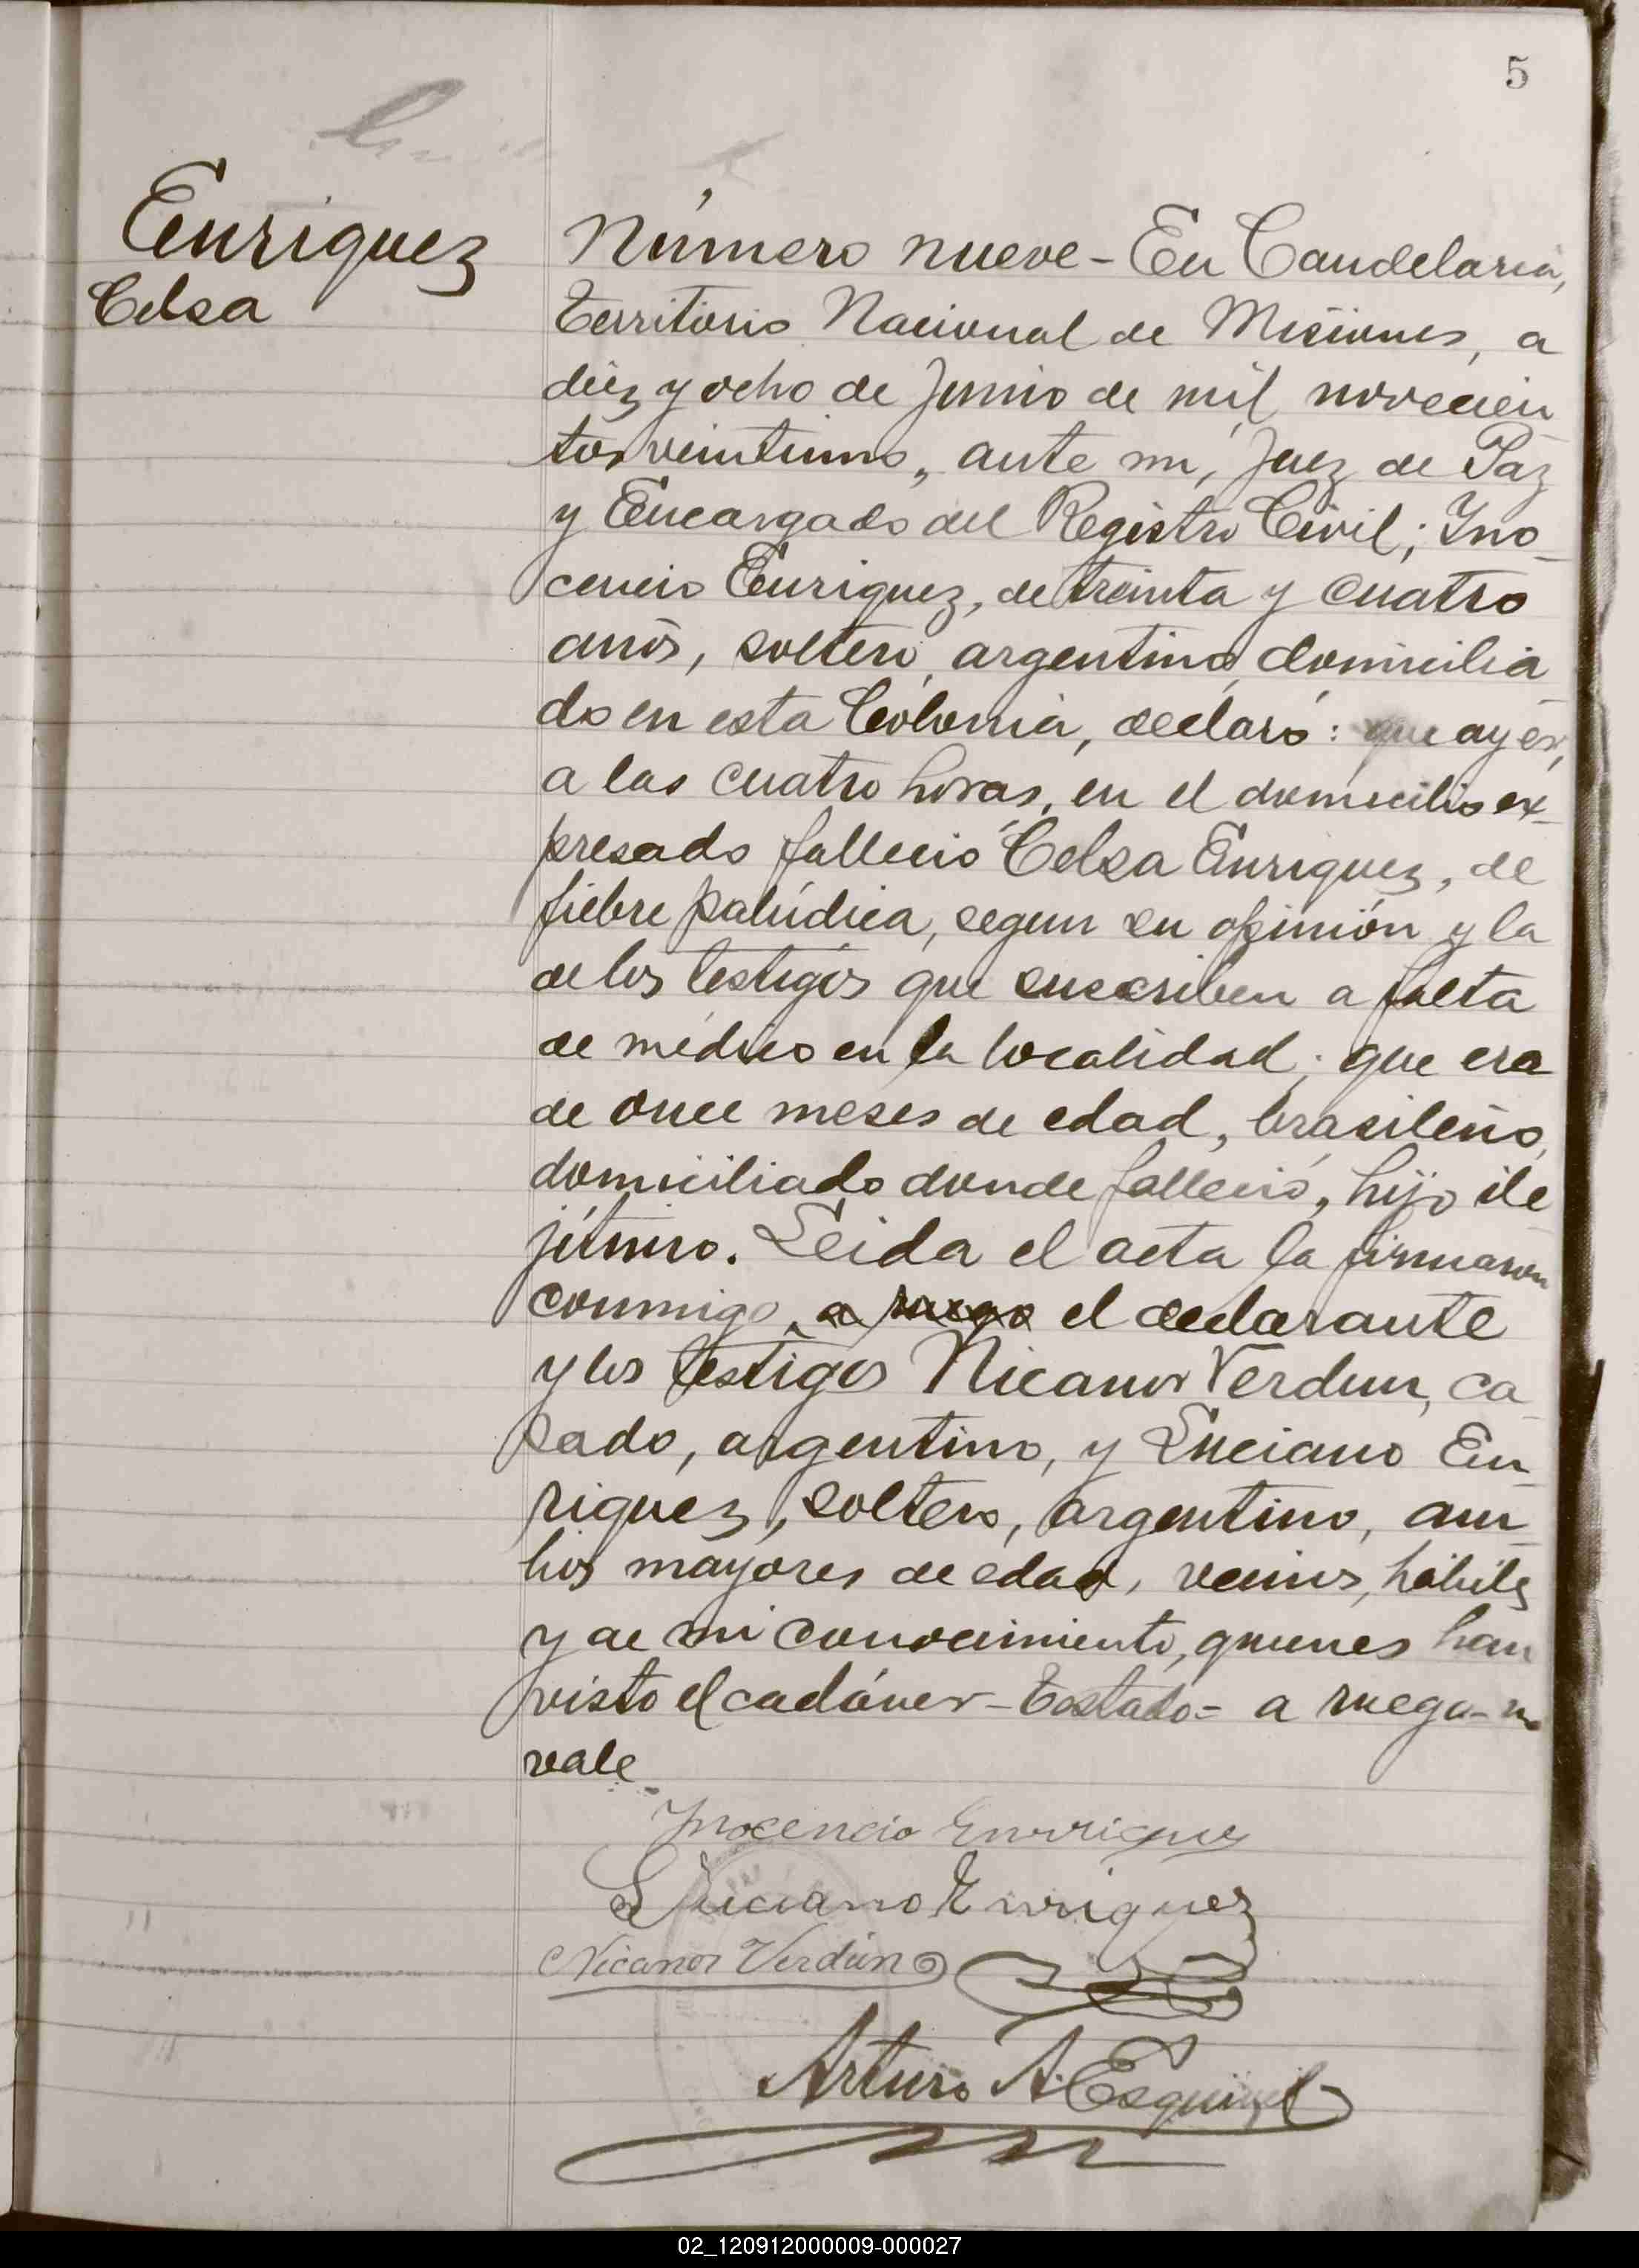 5
Enriquez
Celsa
Número nueve - En Candelaria,
Territorio Nacional de Misiones, a
diez y ocho de Junio de mil novecien
tos veintiuno, ante mi, Juez de Paz
y Encargado del Registro Civil; Ino-
cencio Enriquez, de treinta y cuatro
años, soltero, argentino, domicilia
do en esta Colonia, declaró: que ayer,
a las cuatro horas, en el domicilio ex-
presado falleció Celsa Enriquez, de
fiebre palúdica, segun su opinión y la
de los testigos que suscriben a falta
de médico en la localidad; que era
de once meses de edad, brasileño,
domiciliado donde falleció, hijo ile
jítimo. Leida el acta la firmaron
conmigo, a ruego el declarante
y los testigos Nicanor Verdun, ca
sado, argentino, y Luciano En
riquez, soltero, argentino, am-
bos mayores de edad, vecinos, hábiles
y de mi conocimiento, quienes han
visto el cadáver - Testado = a ruego - no
vale
Inocencio Enrriquez
Luciano Enriquez
Nicanor Verdún
Arturo A. Esquivel
02_120912000009-000027